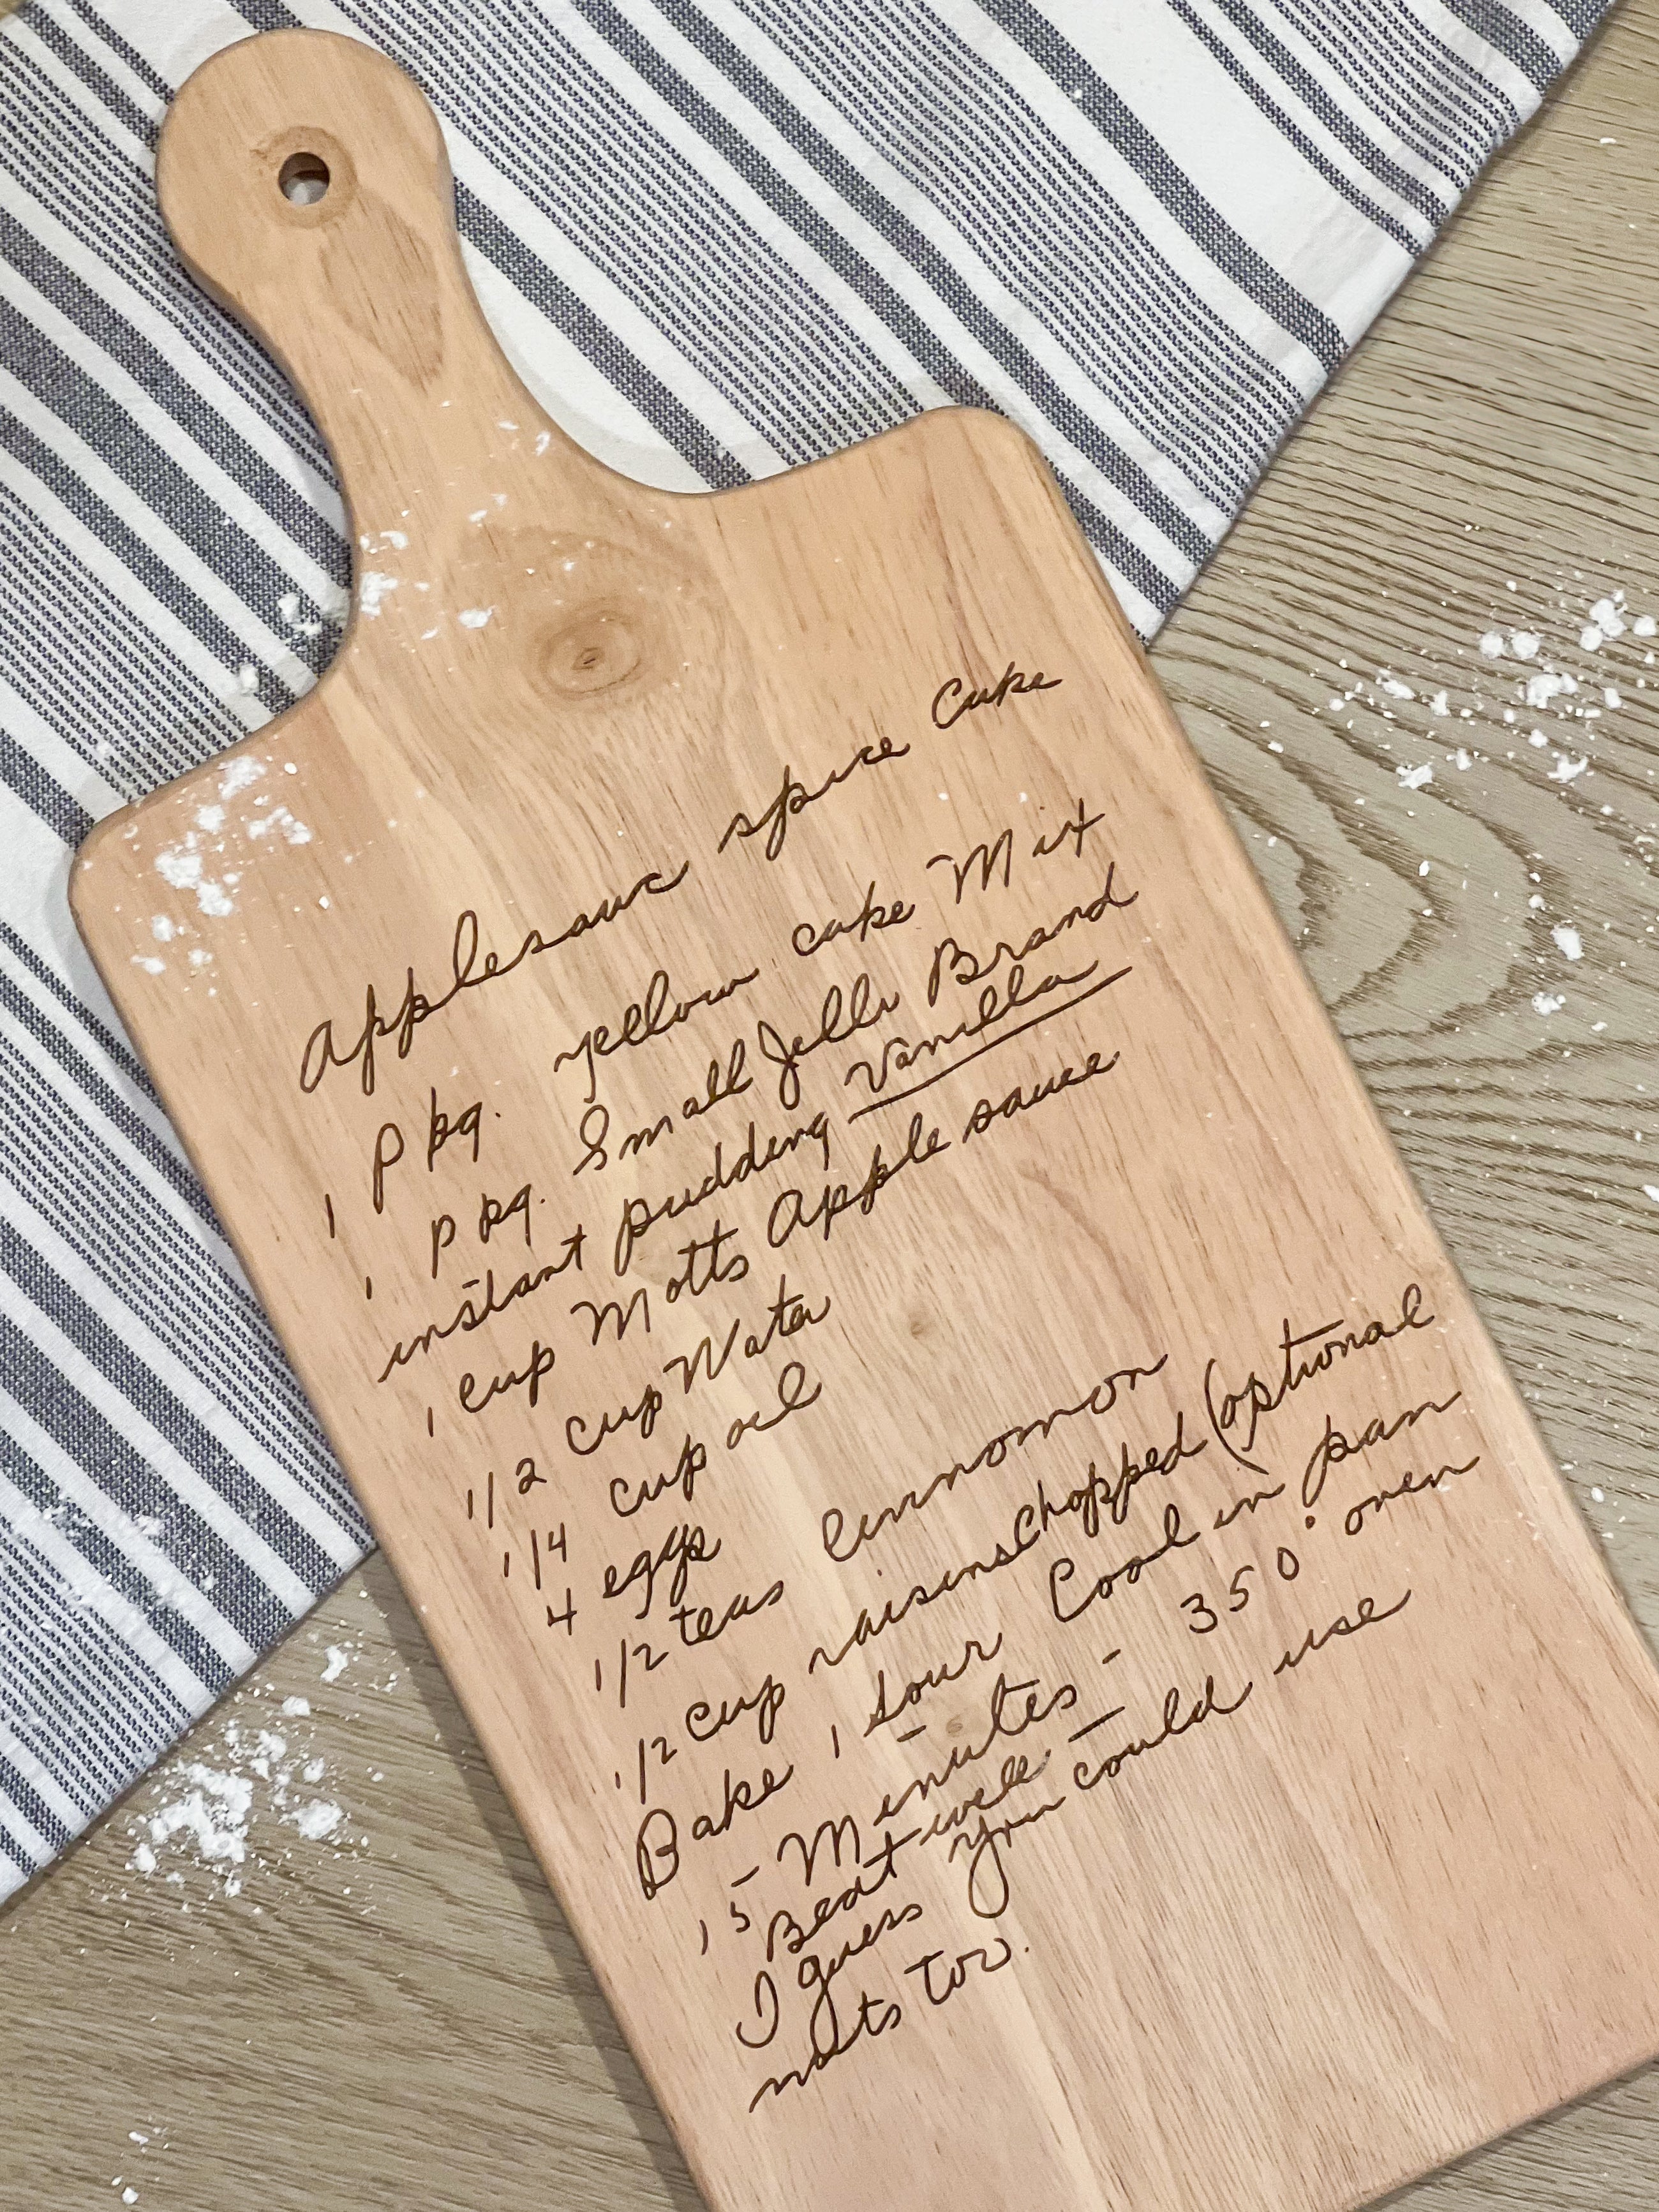 Applesauc spice Cake
1 Ppkg. yellow cake Mix
1 Ppkg. Small Jello Brand
instant pudding Vanilla
1 cup Motts Apple sauce
1/2 cup Water
1/4 cup oil
4 eggs
1/2 teas Cinnomon
1/2 cup raisins chopped (optional
Bake 1 hour Cool in pan
15 - Minutes - 350° oven
Beat well -
I guess you could use
nuts too.